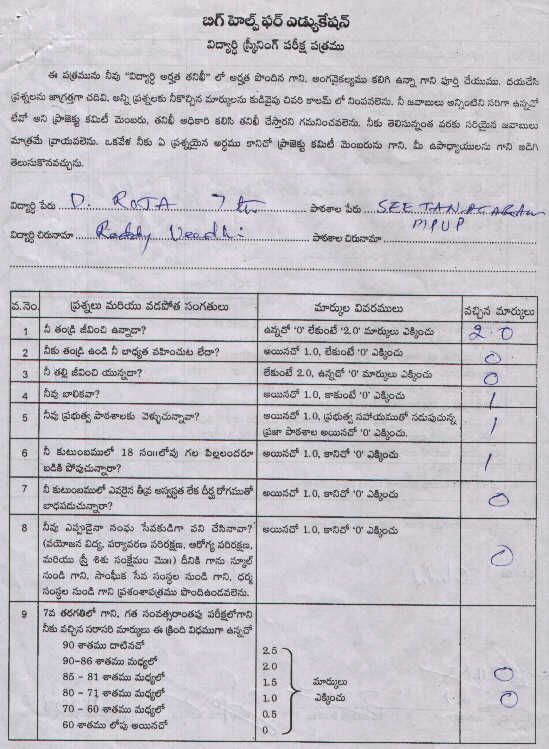 బిగ్ హెల్ప్ ఫర్ ఎడ్యుకేషన్
విద్యార్థి స్క్రీనింగ్ పరీక్ష పత్రము
ఈ పత్రమును నీవు "విద్యార్థి అర్హత తనిఖీ" లో అర్హత పొందిన గాని, అంగవైకల్యము కలిగి ఉన్నా గాని పూర్తి చేయుము. దయచేసి
ప్రశ్నలను జాగ్రత్తగా చదివి, అన్ని ప్రశ్నలకు నీకొచ్చిన మార్కులను కుడివైపు చివరి కాలమ్ లో నింపవలెను. నీ జవాబులు అన్నింటిని సరిగా ఉన్నవో
లేవో అని ప్రాజెక్టు కమిటీ మెంబరు, తనిఖీ అధికారి కలిసి తనిఖీ చేస్తారని గమనించవలెను. నీకు తెలిసినంత వరకు సరియైన జవాబులు
మాత్రమే వ్రాయవలెను. ఒకవేళ నీకు ఏ ప్రశ్నయైన అర్థము కానిచో ప్రాజెక్టు కమిటీ మెంబరును గాని, మీ ఉపాధ్యాయులను గాని అడిగి
తెలుసుకొనవచ్చును.
విద్యార్థి పేరు D. ROJA 7th పాఠశాల పేరు SEETANAGARAM
MPUP
విద్యార్థి చిరునామా Reddy Veedhi పాఠశాల చిరునామా
వ.నెం. ప్రశ్నలు మరియు వడపోత సంగతులు మార్కుల వివరములు వచ్చిన మార్కులు
1 నీ తండ్రి జీవించి ఉన్నాడా? ఉన్నచో '0' లేకుంటే '2.0' మార్కులు ఎక్కించు 2.0
2 నీకు తండ్రి ఉండి నీ బాధ్యత వహించుట లేదా? అయినచో 1.0, లేకుంటే '0' ఎక్కించు 0
3 నీ తల్లి జీవించి యున్నదా? లేకుంటే 2.0, ఉన్నచో '0' మార్కులు ఎక్కించు 0
4 నీవు బాలికవా? అయినచో 1.0, కాకుంటే '0' ఎక్కించు 1
5 నీవు ప్రభుత్వ పాఠశాలకు వెళ్ళుచున్నావా? అయినచో 1.0, ప్రభుత్వ సహాయముతో నడుపుచున్న
ప్రజా పాఠశాల అయినచో '0' ఎక్కించు. 1
6 నీ కుటుంబములో 18 సం॥లోపు గల పిల్లలందరూ
బడికి పోవుచున్నారా? అయినచో 1.0, కానిచో '0' ఎక్కించు 1
7 నీ కుటుంబములో ఎవరైన తీవ్ర అస్వస్థత లేక దీర్ఘ రోగముతో
బాధపడుచున్నారా? అయినచో 1.0, కానిచో '0' ఎక్కించు 0
8 నీవు ఎప్పుడైనా సంఘ సేవకుడిగా పని చేసినావా? అయినచో 1.0, కానిచో '0' ఎక్కించు
(వయోజన విద్య, పర్యావరణ పరిరక్షణ, ఆరోగ్య పరిరక్షణ,
మరియు స్త్రీ శిశు సంక్షేమం మొ॥) దీనికి గాను స్కూల్ 0
నుండి గాని, సాంఘీక సేవ సంస్థల నుండి గాని, ధర్మ
సంస్థల నుండి గాని ప్రశంశాపత్రము పొందిఉండవలెను.
9 7వ తరగతిలో గాని, గత సంవత్సరాంతపు పరీక్షలోగాని
నీకు వచ్చిన సరాసరి మార్కులు ఈ క్రింది విధముగా ఉన్నచో
90 శాతము దాటినచో 2.5
90-86 శాతము మధ్యలో 2.0
85 - 81 శాతము మధ్యలో 1.5 మార్కులు 0
80 - 71 శాతము మధ్యలో 1.0 ఎక్కించు 0
70 - 60 శాతము మధ్యలో 0.5
60 శాతము లోపు అయినచో 0